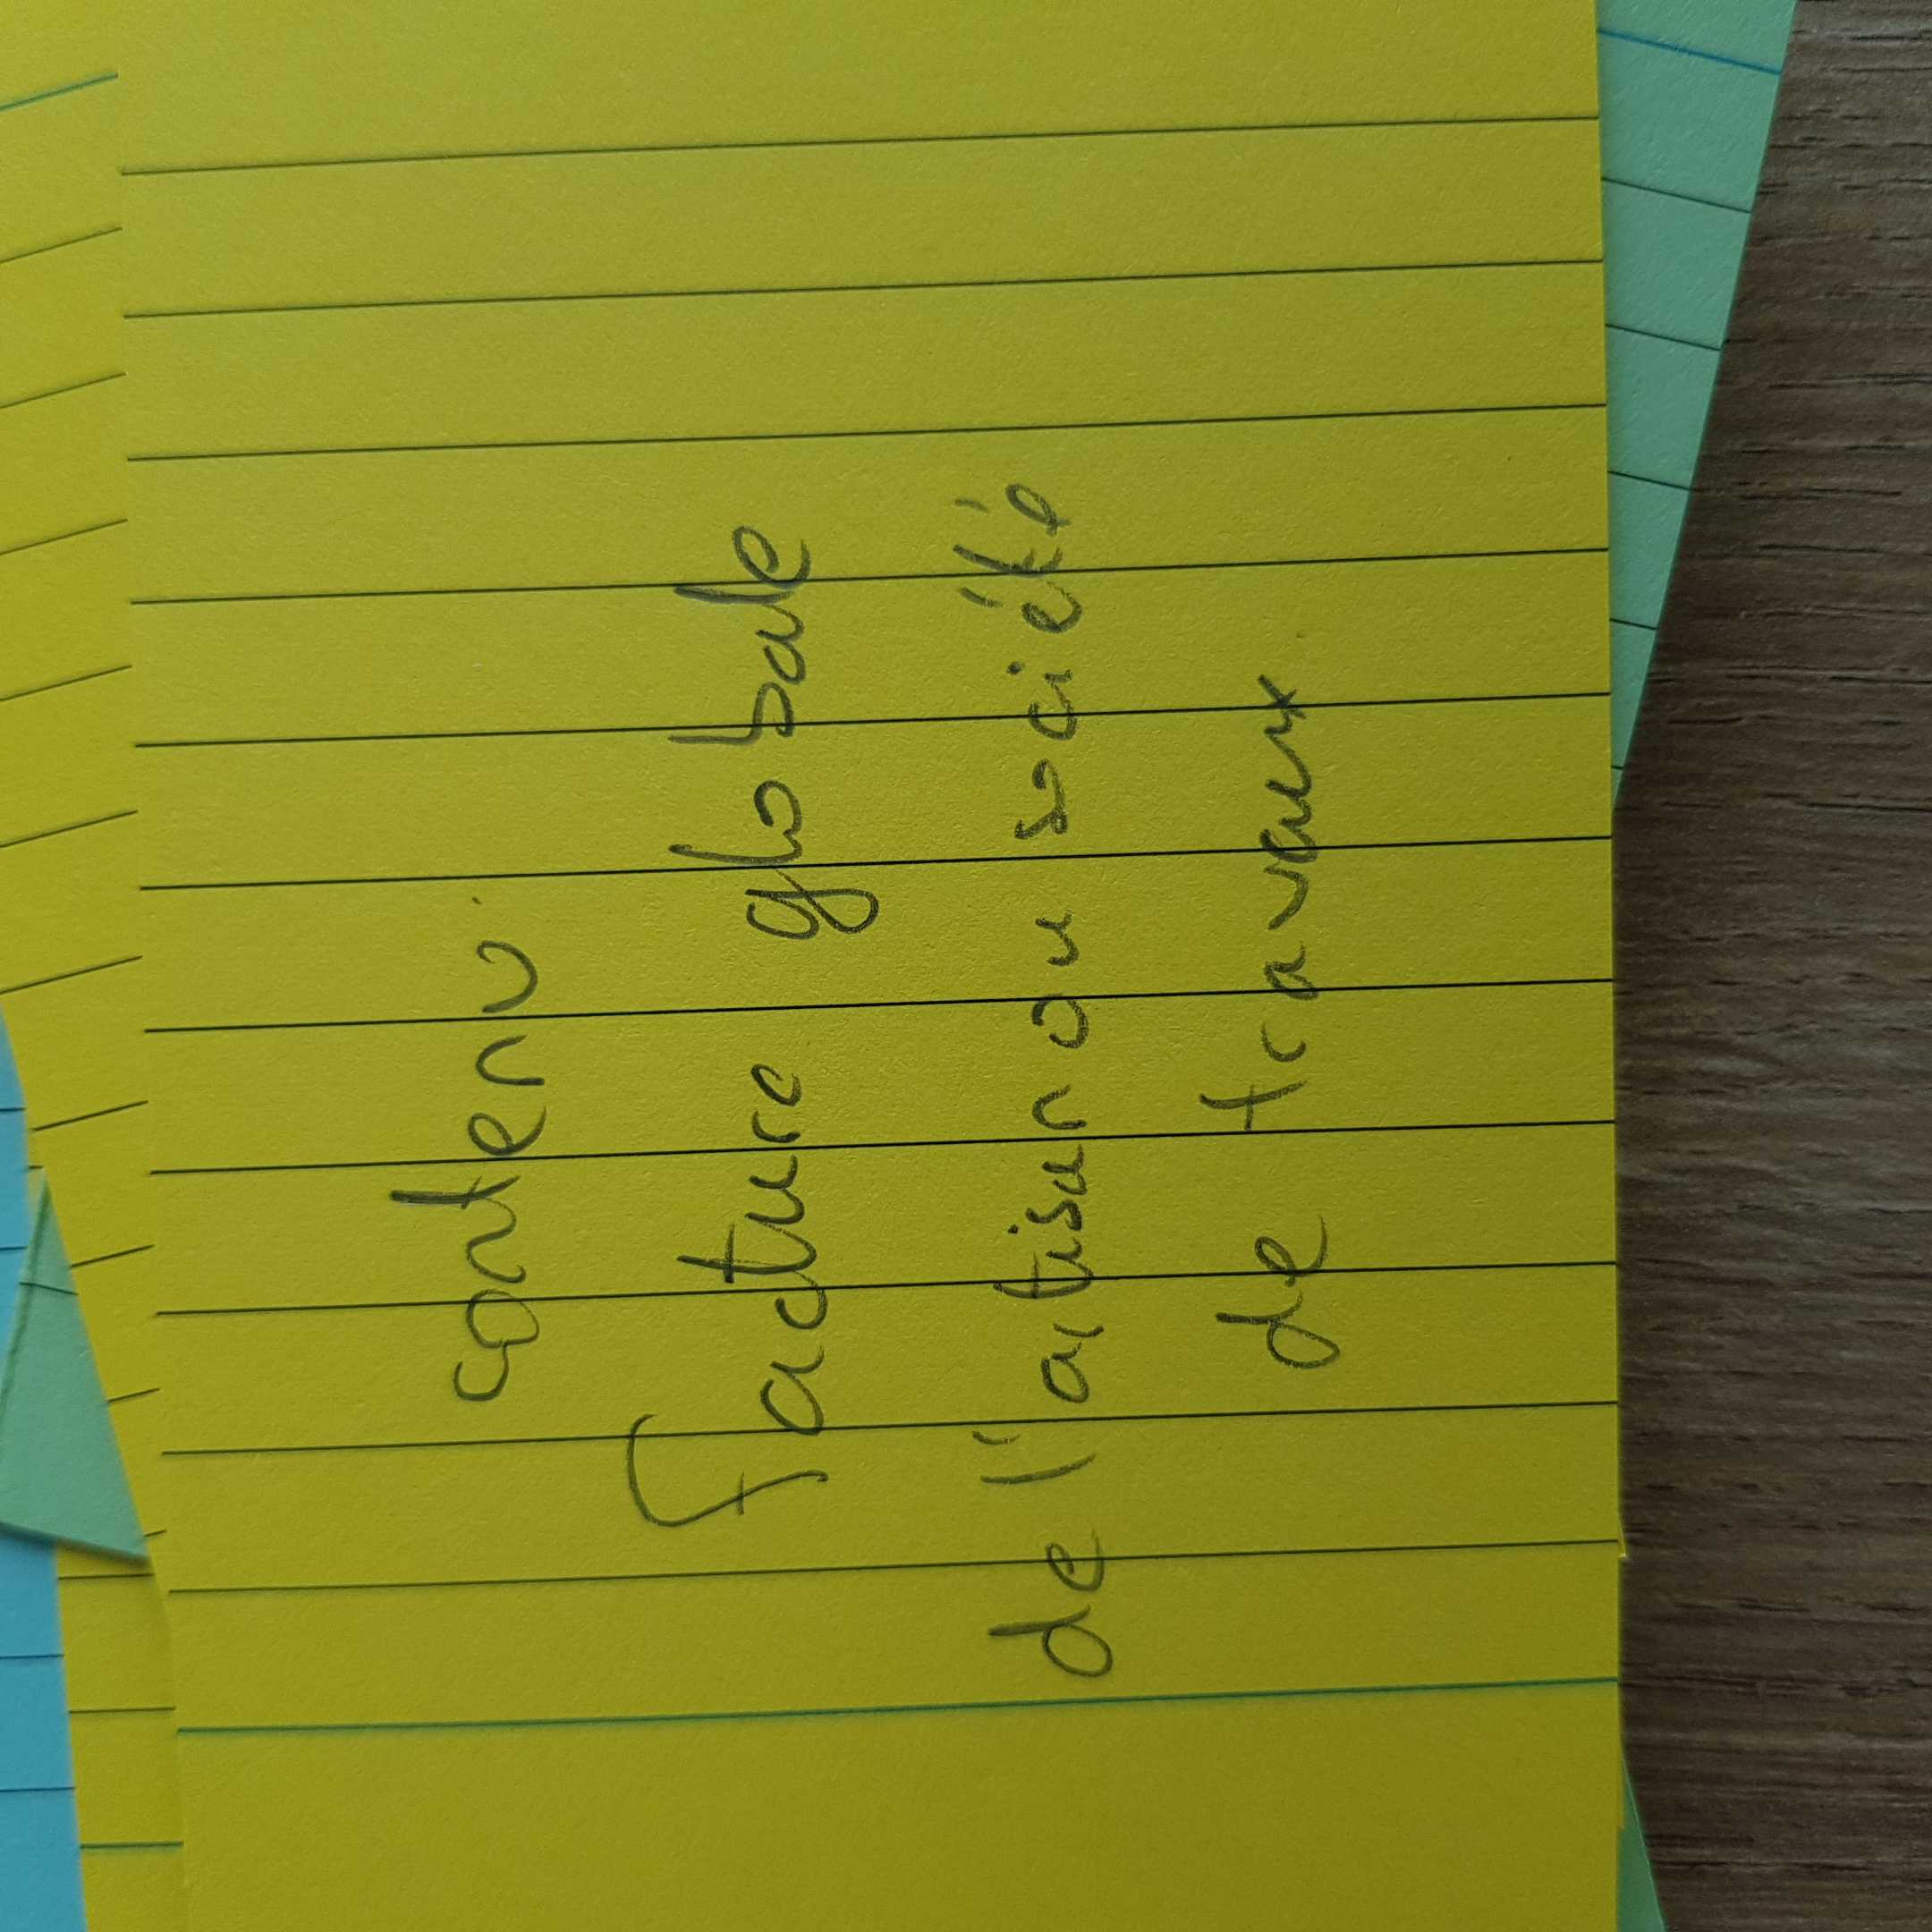 contenu
Facture globale
de l'artisan ou société
de travaux